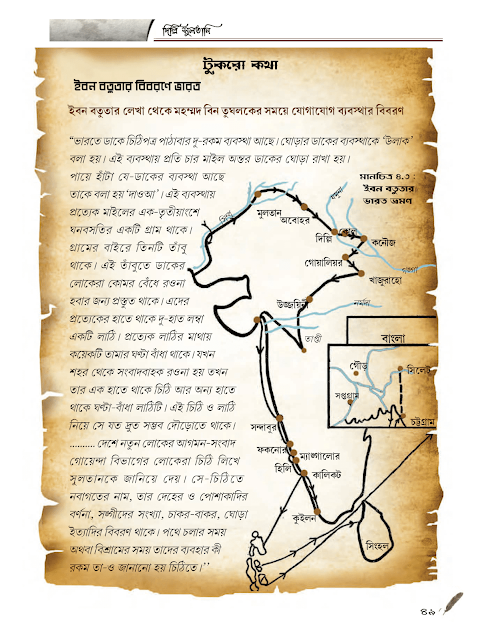 দিল্লি সুলতানি
টুকরো কথা
ইবন বতুতার বিবরণে ভারত
ইবন বতুতার লেখা থেকে মহম্মদ বিন তুঘলকের সময়ে যোগাযোগ ব্যবস্থার বিবরণ
“ভারতে ডাকে চিঠিপত্র পাঠাবার দু-রকম ব্যবস্থা আছে। ঘোড়ার ডাকের ব্যবস্থাকে ‘উলাক’
বলা হয়। এই ব্যবস্থায় প্রতি চার মাইল অন্তর ডাকের ঘোড়া রাখা হয়।
পায়ে হাঁটা যে-ডাকের ব্যবস্থা আছে
তাকে বলা হয় ‘দাওআ’। এই ব্যবস্থায়
প্রত্যেক মাইলের এক-তৃতীয়াংশে
ঘনবসতির একটি গ্রাম থাকে।
গ্রামের বাইরে তিনটি তাঁবু
থাকে। এই তাঁবুতে ডাকের
লোকেরা কোমর বেঁধে রওনা
হবার জন্য প্রস্তুত থাকে। এদের
প্রত্যেকের হাতে থাকে দু-হাত লম্বা
একটি লাঠি। প্রত্যেক লাঠির মাথায়
কয়েকটি তামার ঘণ্টা বাঁধা থাকে। যখন
শহর থেকে সংবাদবাহক রওনা হয় তখন
তার এক হাতে থাকে চিঠি আর অন্য হাতে
থাকে ঘণ্টা-বাঁধা লাঠিটি। এই চিঠি ও লাঠি
নিয়ে সে যত দ্রুত সম্ভব দৌড়োতে থাকে।
.......... দেশে নতুন লোকের আগমন-সংবাদ
গোয়েন্দা বিভাগের লোকেরা চিঠি লিখে
সুলতানকে জানিয়ে দেয়। সে-চিঠিতে
নবাগতের নাম, তার দেহের ও পোশাকাদির
বর্ণনা, সঙ্গীদের সংখ্যা, চাকর-বাকর, ঘোড়া
ইত্যাদির বিবরণ থাকে। পথে চলার সময়
অথবা বিশ্রামের সময় তাদের ব্যবহার কী
রকম তা-ও জানানো হয় চিঠিতে।’’
মানচিত্র ৪.১ :
ইবন বতুতার
ভারত ভ্রমণ
সিন্ধু
মুলতান
অবোহর
যমুনা
দিল্লি
কোল
কনৌজ
গোয়ালিয়র
গঙ্গা
খাজুরাহো
উজ্জয়িনী
নর্মদা
তাপ্তী
বাংলা
গৌড়
সিলেট
সপ্তগ্রাম
চট্টগ্রাম
সন্দাবুর
ফকনোর
ম্যাঙ্গালোর
হিলি
কালিকট
কুইলন
সিংহল
৪৯